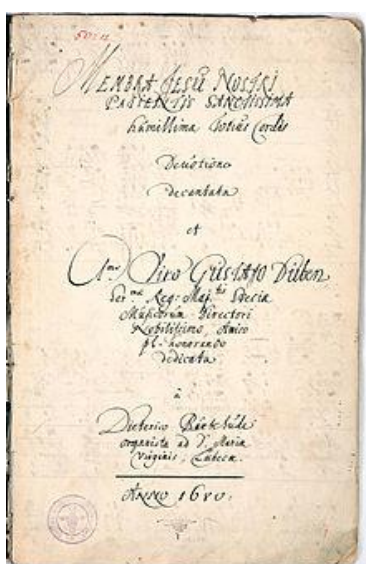 50:12
MEMBRA JESU NOSTRI
PATIENTIS SANCTISSIMA
humillima Totius Cordis
Devotione
decantata
et
1mo Viro GUSTAVO Düben
Ser.mæ Reg: Maj.tis Sueciæ
Musicorum Directori
Nobilissimo, Amico
pl. honorando
dedicata
à
Dieterico Buxtehude
organista ad S. Mariæ
Virginis, Lubeca.
ANNO 1680.